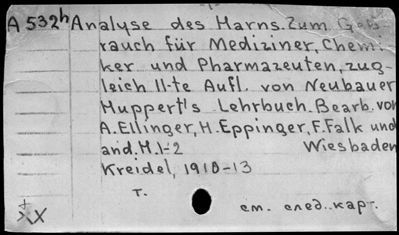 A 532h Analyse des Harns. Zum Geb-
rauch für Mediziner, Chemi-
ker und Pharmazeuten, zug-
leich 11-te Aufl. von Neubauer
Huppert's Lehrbuch. Bearb. von
A. Ellinger, H. Eppinger, F. Falk und
and. H. 1-2 Wiesbaden
Kreidel, 1910-13
т.
см. след. карт.